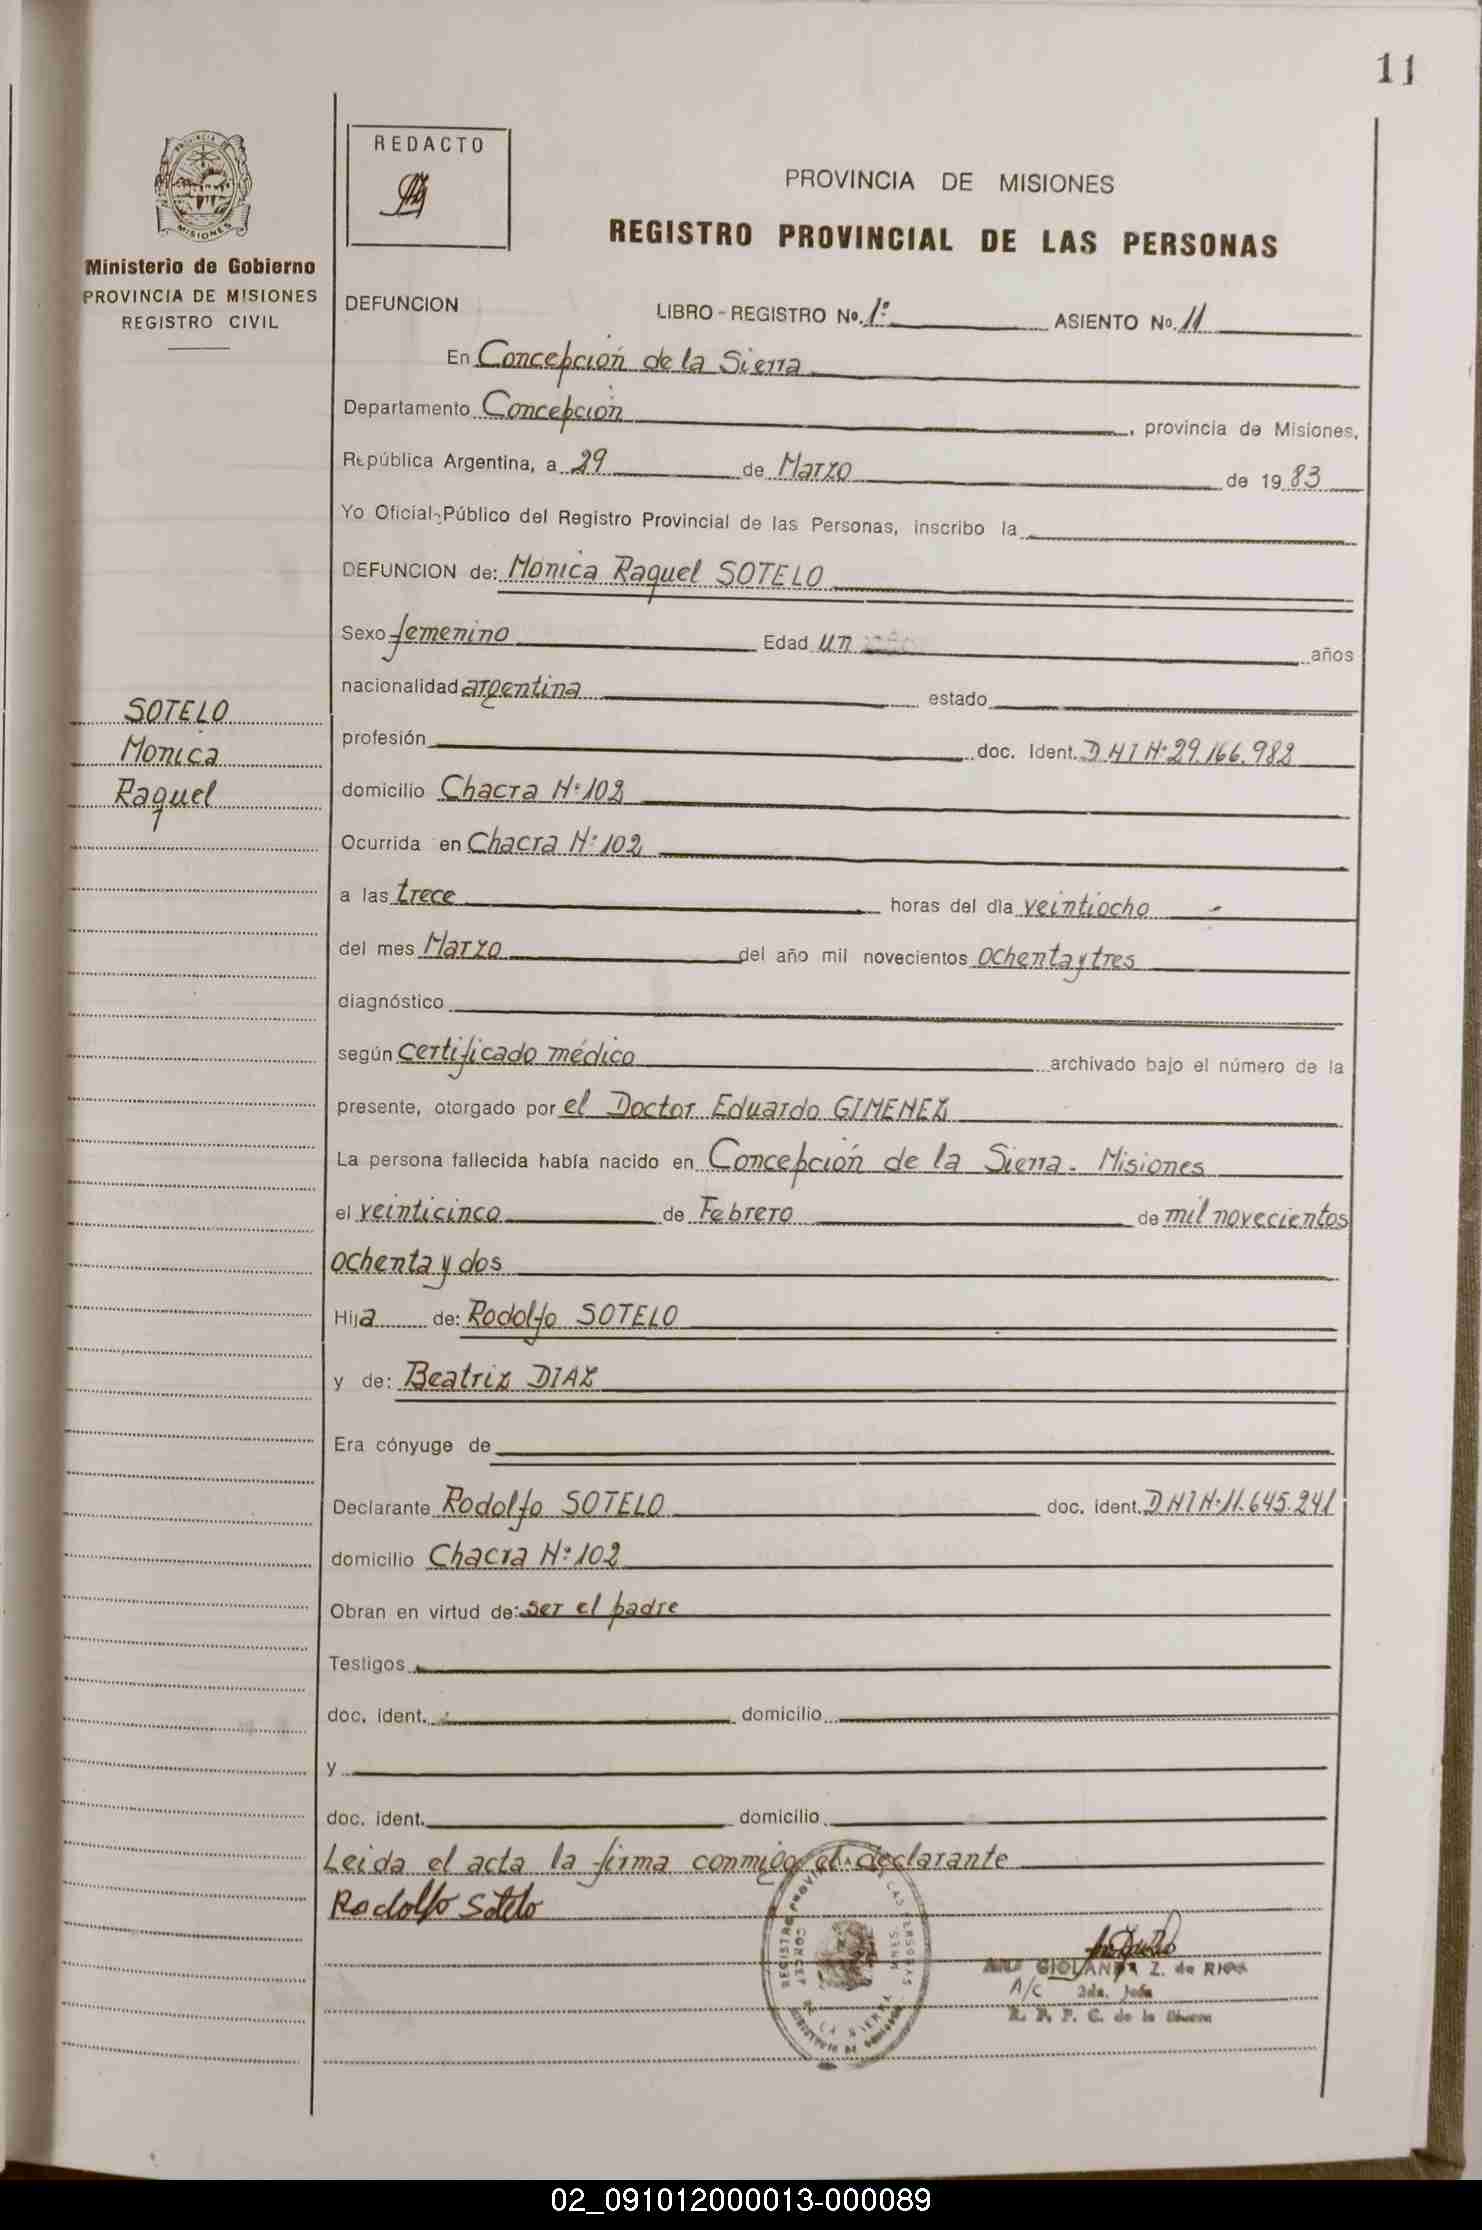 11
REDACTO
PROVINCIA DE MISIONES
REGISTRO PROVINCIAL DE LAS PERSONAS
PROVINCIA DE
MISIONES
Ministerio de Gobierno
PROVINCIA DE MISIONES
REGISTRO CIVIL
DEFUNCION LIBRO-REGISTRO No. 1º ASIENTO No. 11
En Concepción de la Sierra
Departamento Concepción, provincia de Misiones,
República Argentina, a 29 de Marzo de 1983
Yo Oficial Público del Registro Provincial de las Personas, inscribo la
DEFUNCION de: Mónica Raquel SOTELO
Sexo femenino Edad un años
nacionalidad argentina estado
SOTELO
Mónica
Raquel
profesión doc. Ident. D N I N: 29.166.982
domicilio Chacra N: 102
Ocurrida en Chacra N: 102
a las trece horas del día veintiocho
del mes Marzo del año mil novecientos ochenta y tres
diagnóstico
según certificado médico archivado bajo el número de la
presente, otorgado por el Doctor Eduardo GIMENEZ
La persona fallecida había nacido en Concepción de la Sierra - Misiones
el veinticinco de Febrero de mil novecientos
ochenta y dos
Hija de: Rodolfo SOTELO
y de: Beatriz DIAZ
Era cónyuge de
Declarante Rodolfo SOTELO doc. ident. D N I N: 11.645.241
domicilio Chacra N: 102
Obran en virtud de: ser el padre
Testigos
doc. ident. domicilio
y
doc. ident. domicilio
Leida el acta la firma conmigo el declarante
Rodolfo Sotelo
Z. de
A/C 2da. Jefa
R. P. P. C. de la Sierra
02_091012000013-000089